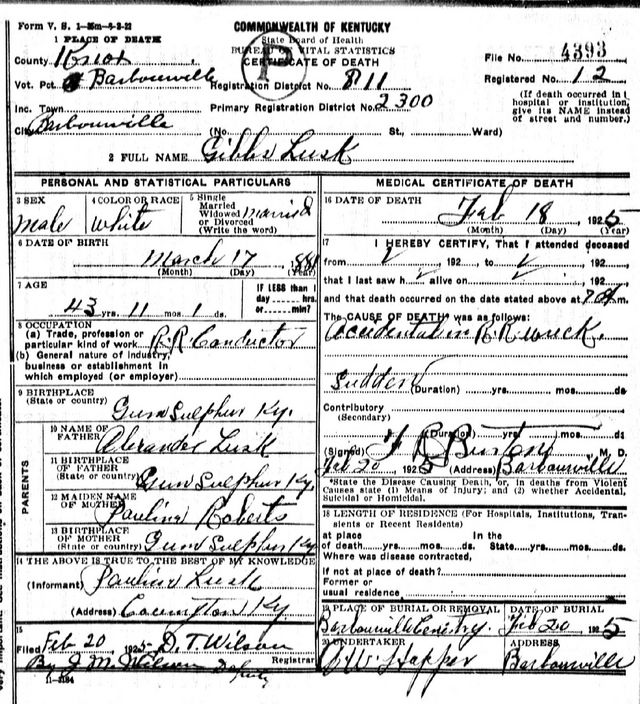 Form V. S. 1-35m-5-3-22
COMMONWEALTH OF KENTUCKY
State Board of Health
BUREAU OF VITAL STATISTICS
CERTIFICATE OF DEATH
1 PLACE OF DEATH
County Knox
Vot. Pct. Barbourville
Inc. Town
City Barbourville
Registration District No. 811
Primary Registration District No. 2300
File No. 4393
Registered No. 12
(If death occurred in a hospital or institution, give its NAME instead of street and number.)
(No. St., Ward)
2 FULL NAME Gibbs Lusk
PERSONAL AND STATISTICAL PARTICULARS
3 SEX
male
4 COLOR OR RACE
White
5 Single
Married
Widowed
or Divorced
(Write the word)
Married
6 DATE OF BIRTH
March 17 1881
(Month) (Day) (Year)
7 AGE
43 yrs. 11 mos. 1 ds.
IF LESS than 1
day hrs.
or min.?
8 OCCUPATION
(a) Trade, profession or
particular kind of work R.R. Conductor
(b) General nature of industry,
business or establishment in
which employed (or employer)
9 BIRTHPLACE
(State or country)
Gum Sulphur Ky.
PARENTS
10 NAME OF
FATHER
Alexander Lusk
11 BIRTHPLACE
OF FATHER
(State or country)
Gum Sulphur Ky.
12 MAIDEN NAME
OF MOTHER
Paulina Roberts
13 BIRTHPLACE
OF MOTHER
(State or country)
Gum Sulphur Ky
14 THE ABOVE IS TRUE TO THE BEST OF MY KNOWLEDGE
(Informant) Paulina Lusk
(Address) Covington Ky
15
Filed Feb 20 1925 D. T. Wilson
Registrar
By J. M. Wilson Deputy
11-3184
MEDICAL CERTIFICATE OF DEATH
16 DATE OF DEATH
Feb 18, 1925
(Month) (Day) (Year)
17 I HEREBY CERTIFY, That I attended deceased
from , 192 , to , 192 ,
that I last saw h alive on , 192 ,
and that death occurred on the date stated above at M.
The CAUSE OF DEATH* was as follows:
Accidental in R.R. wreck.
Sudden
(Duration) yrs. mos. ds.
Contributory
(Secondary)
(Duration) yrs. mos. ds.
(Signed) Burton, M. D.
Feb 20 1925 (Address) Barbourville
*State the Disease Causing Death, or, in deaths from Violent
Causes state (1) Means of Injury; and (2) whether Accidental,
Suicidal or Homicidal.
18 LENGTH OF RESIDENCE (For Hospitals, Institutions, Tran-
sients or Recent Residents)
at place In the
of death yrs. mos. ds. State yrs. mos. ds.
Where was disease contracted,
If not at place of death?
Former or
usual residence
19 PLACE OF BURIAL OR REMOVAL
Barbourville Cemetry.
DATE OF BURIAL
Feb 20 1925
20 UNDERTAKER
Hopper
ADDRESS
Barbourville